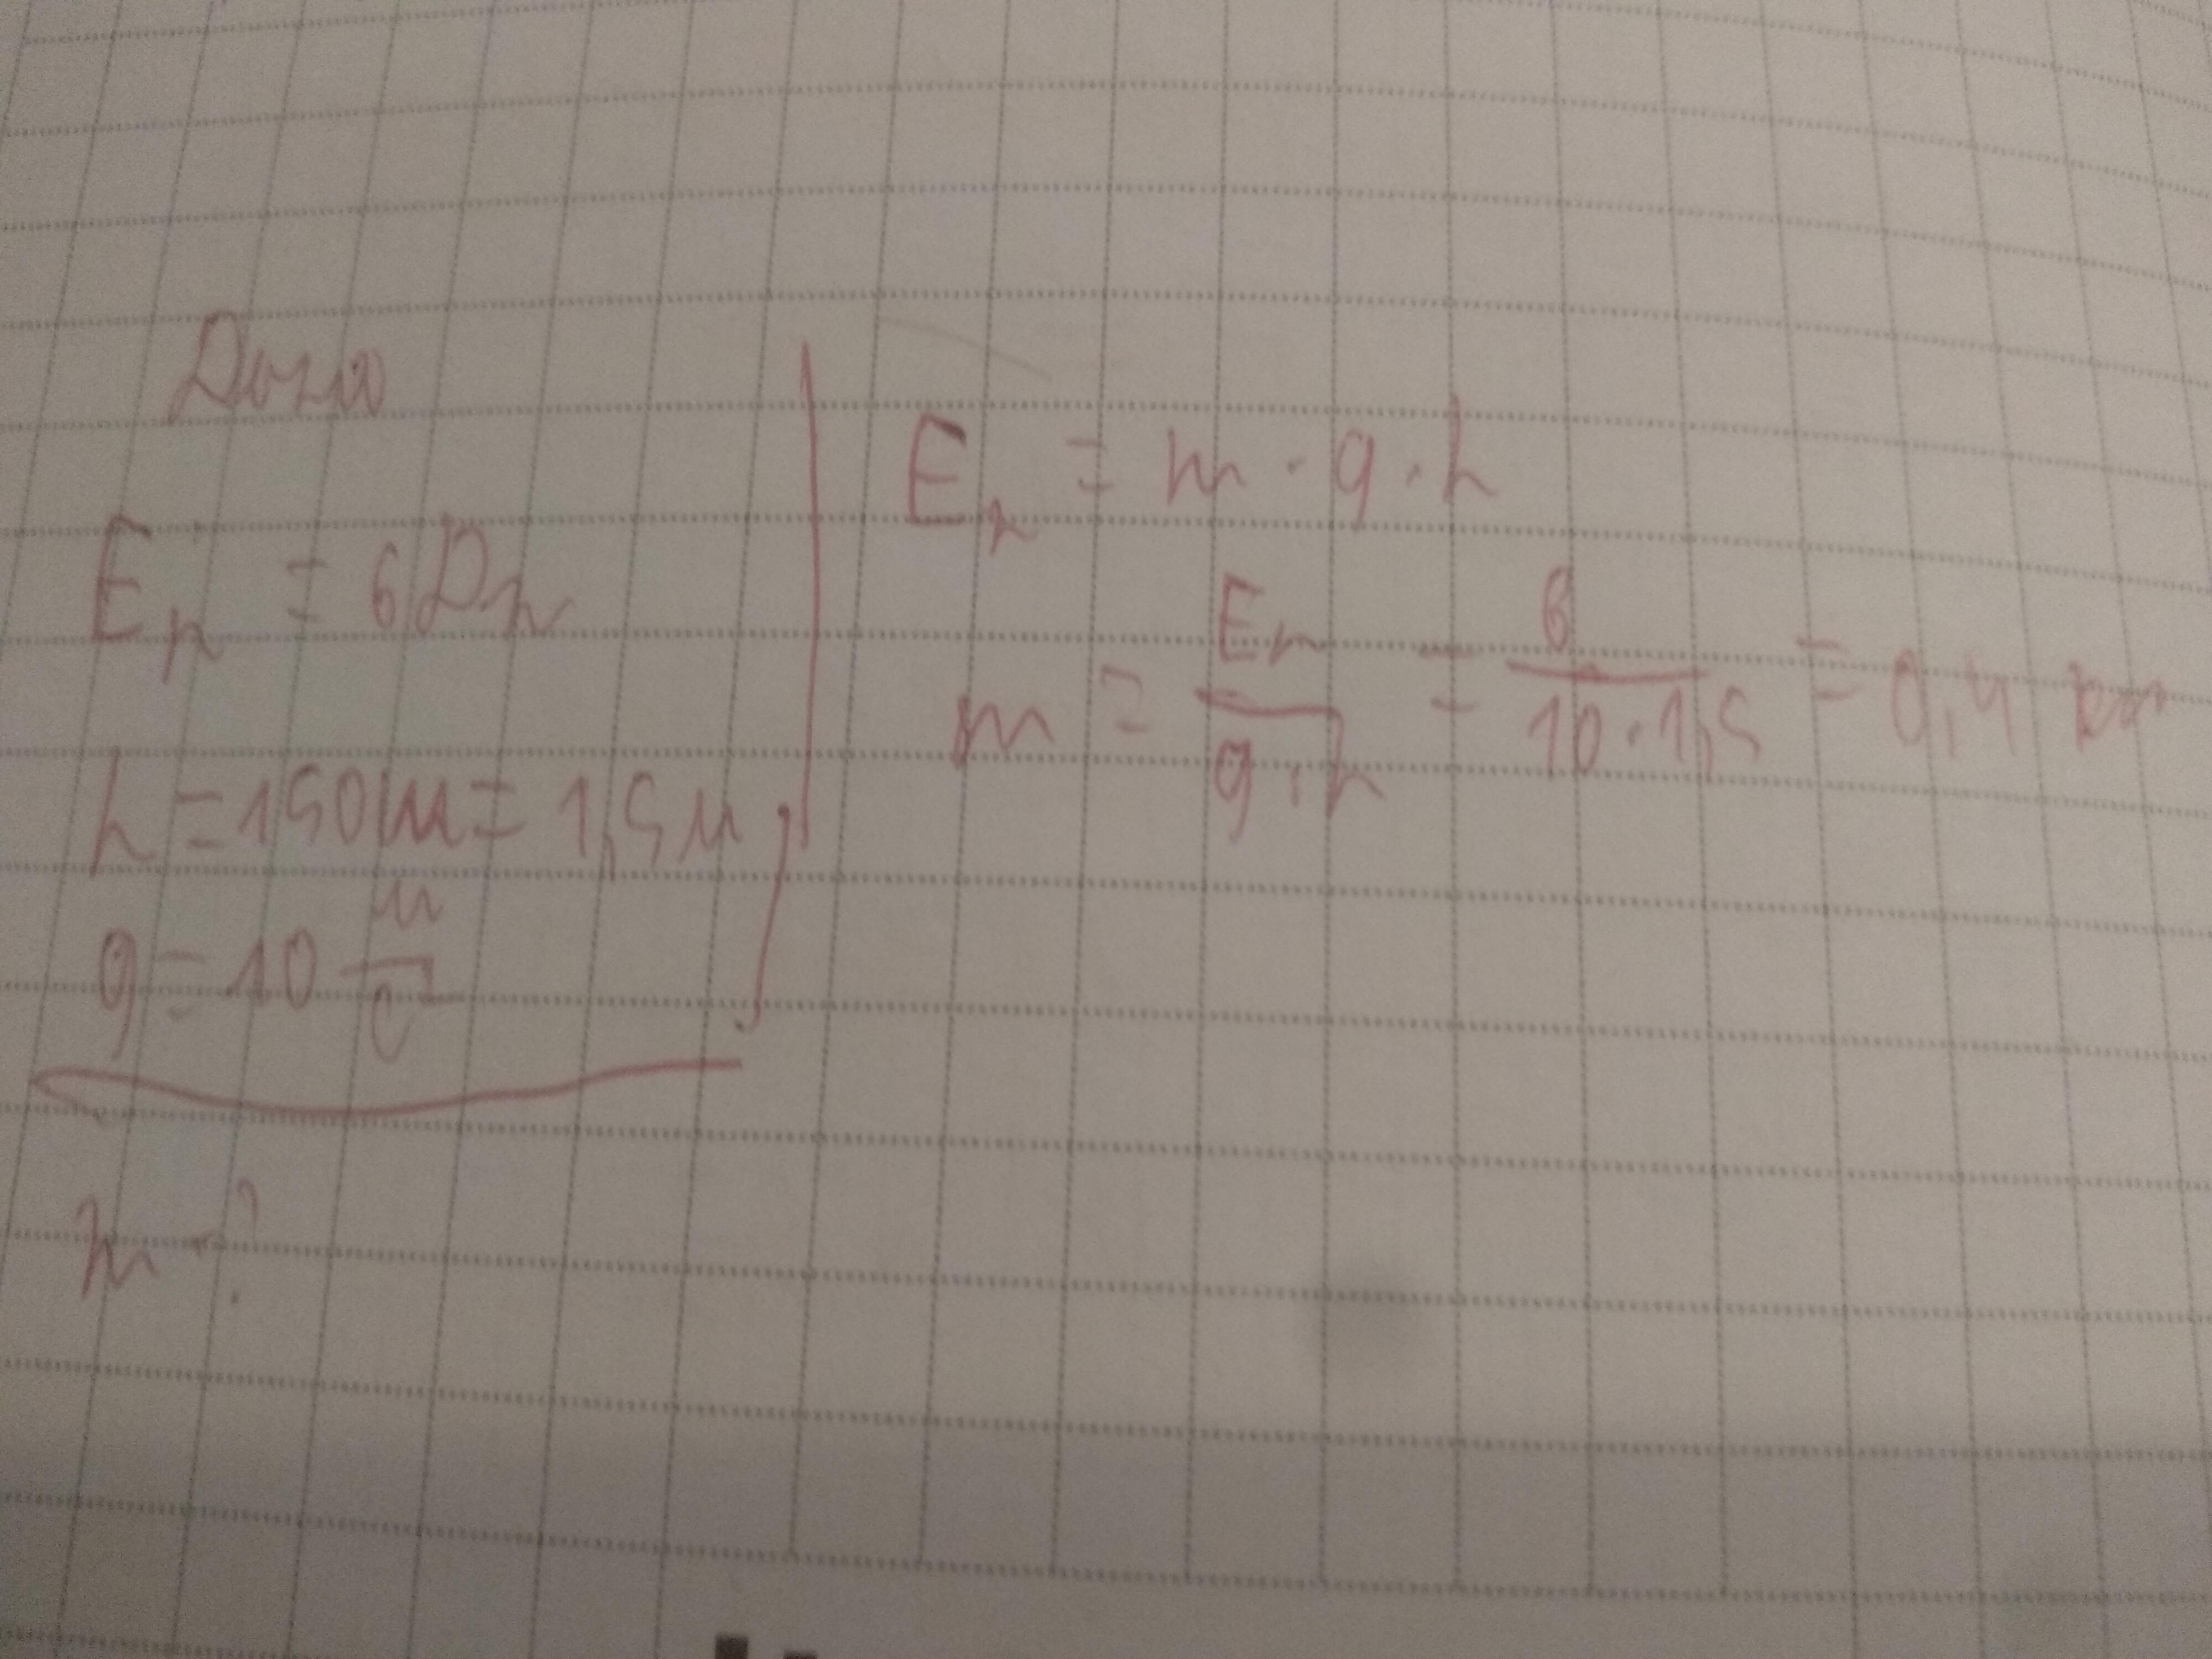 Дано
Eп = 6 Дж
h = 150 см = 1,5 м
g = 10 м/с²
m - ?
Eп = m · g · h
m = Eп/g·h = 6/10·1,5 = 0,4 кг